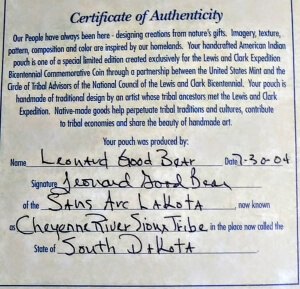 Certificate of Authenticity
Our People have always been here - designing creations from nature's gifts. Imagery, texture,
pattern, composition and color are inspired by our homelands. Your handcrafted American Indian
pouch is one of a special limited edition created exclusively for the Lewis and Clark Expedition
Bicentennial Commemorative Coin through a partnership between the United States Mint and the
Circle of Tribal Advisors of the National Council of the Lewis and Clark Bicentennial. Your pouch is
handmade of traditional design by an artist whose tribal ancestors met the Lewis and Clark
Expedition. Native-made goods help perpetuate tribal traditions and cultures, contribute
to tribal economies and share the beauty of handmade art.
Your pouch was produced by:
Name Leonard Good Bear Date 7-30-04
Signature Leonard Good Bear
of the Sans Arc Lakota, now known
as Cheyenne River Sioux Tribe in the place now called the
State of South Dakota